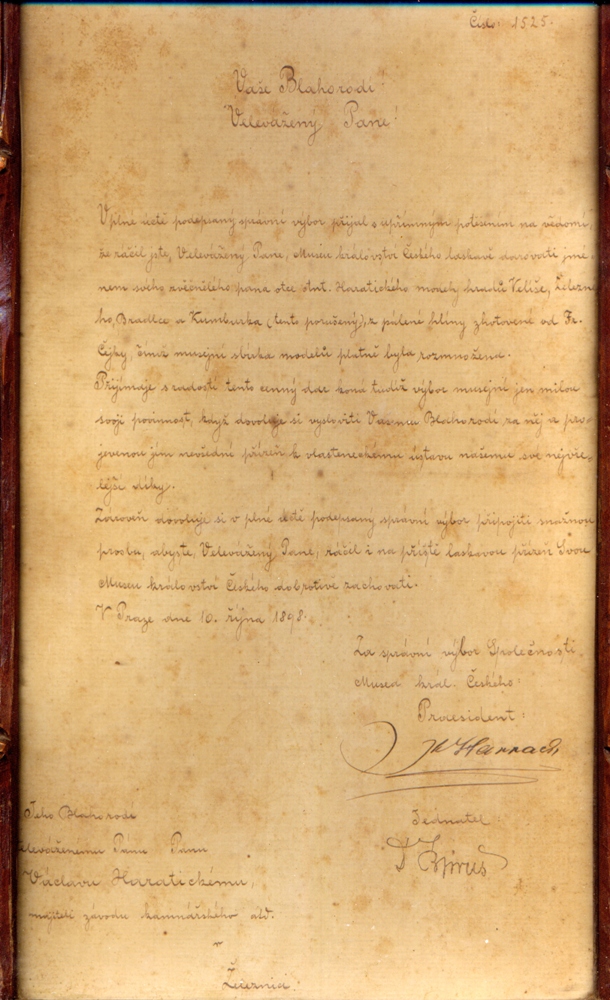 Číslo 1525.
Vaše Blahorodí!
Velevážený Pane!
V plné úctě podepsaný správní výbor přijal s upřímným potěšením na vědomí,
že ráčil jste, Velevážený Pane, Museu království Českého laskavě darovati jmé-
nem svého zvěčnělého pana otce Ant. Haratického modely hradů Veliše, Železné
ho, Bradlce a Kumburka (tento porušený), z pálené hlíny zhotovené od Fr.
Čejky, čímž musejní sbírka modelů platně byla rozmnožena.
Přijímaje s radostí tento cenný dar koná tudíž výbor musejní jen milou
svoji povinnost, když dovoluje si vysloviti Vašemu Blahorodí za něj a pro
jevenou jím nevšední přízeň k vlasteneckému ústavu našemu své nejvře-
lejší díky.
Zároveň dovoluje si v plné úctě podepsaný správní výbor připojiti snažnou
prosbu, abyste, Velevážený Pane, ráčil i na příště laskavou přízeň Svou
Museu království Českého dobrotivě zachovati.
V Praze dne 10. října 1898.
Za správní výbor Společnosti
Musea král. Českého:
Praesident:
Harrach
Jednatel:
Jeho Blahorodí
Velaváženému Pánu Panu
Václavu Haratickému,
majiteli závodu kamnářského atd.
v
Železnici.